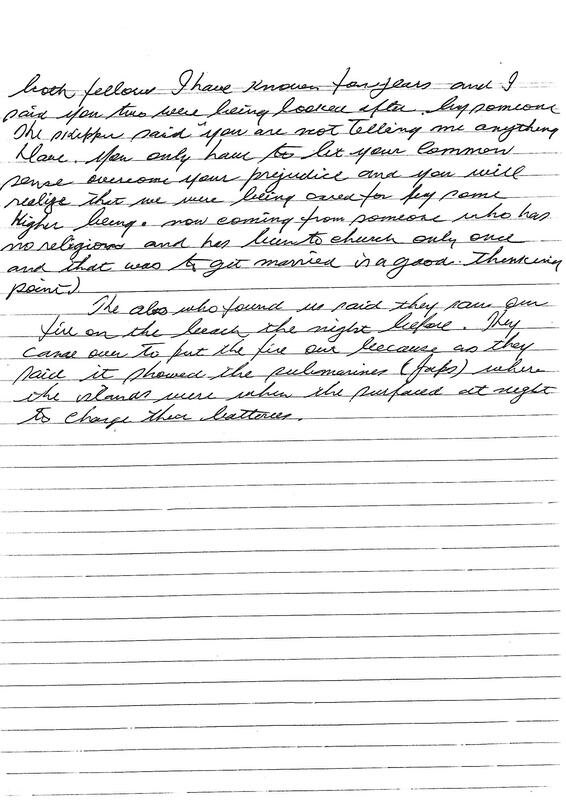 both fellows I have known for years and I
said you two were being looked after. by someone
The skipper said "you are not telling me anything
Dave. You only have to let your Common
sense overcome your prejudice and you will
realize that we were being cared for by some
Higher being. now coming from someone who has
no religious and has been to church only once
and that was to get married is a good. thinking
point)
The abos who found us said they saw our
fire on the beach the night before. They
came over to put the fire out because as they
said it showed the submarines (Japs) where
the islands were when the surfaced at night
to charge their batteries.